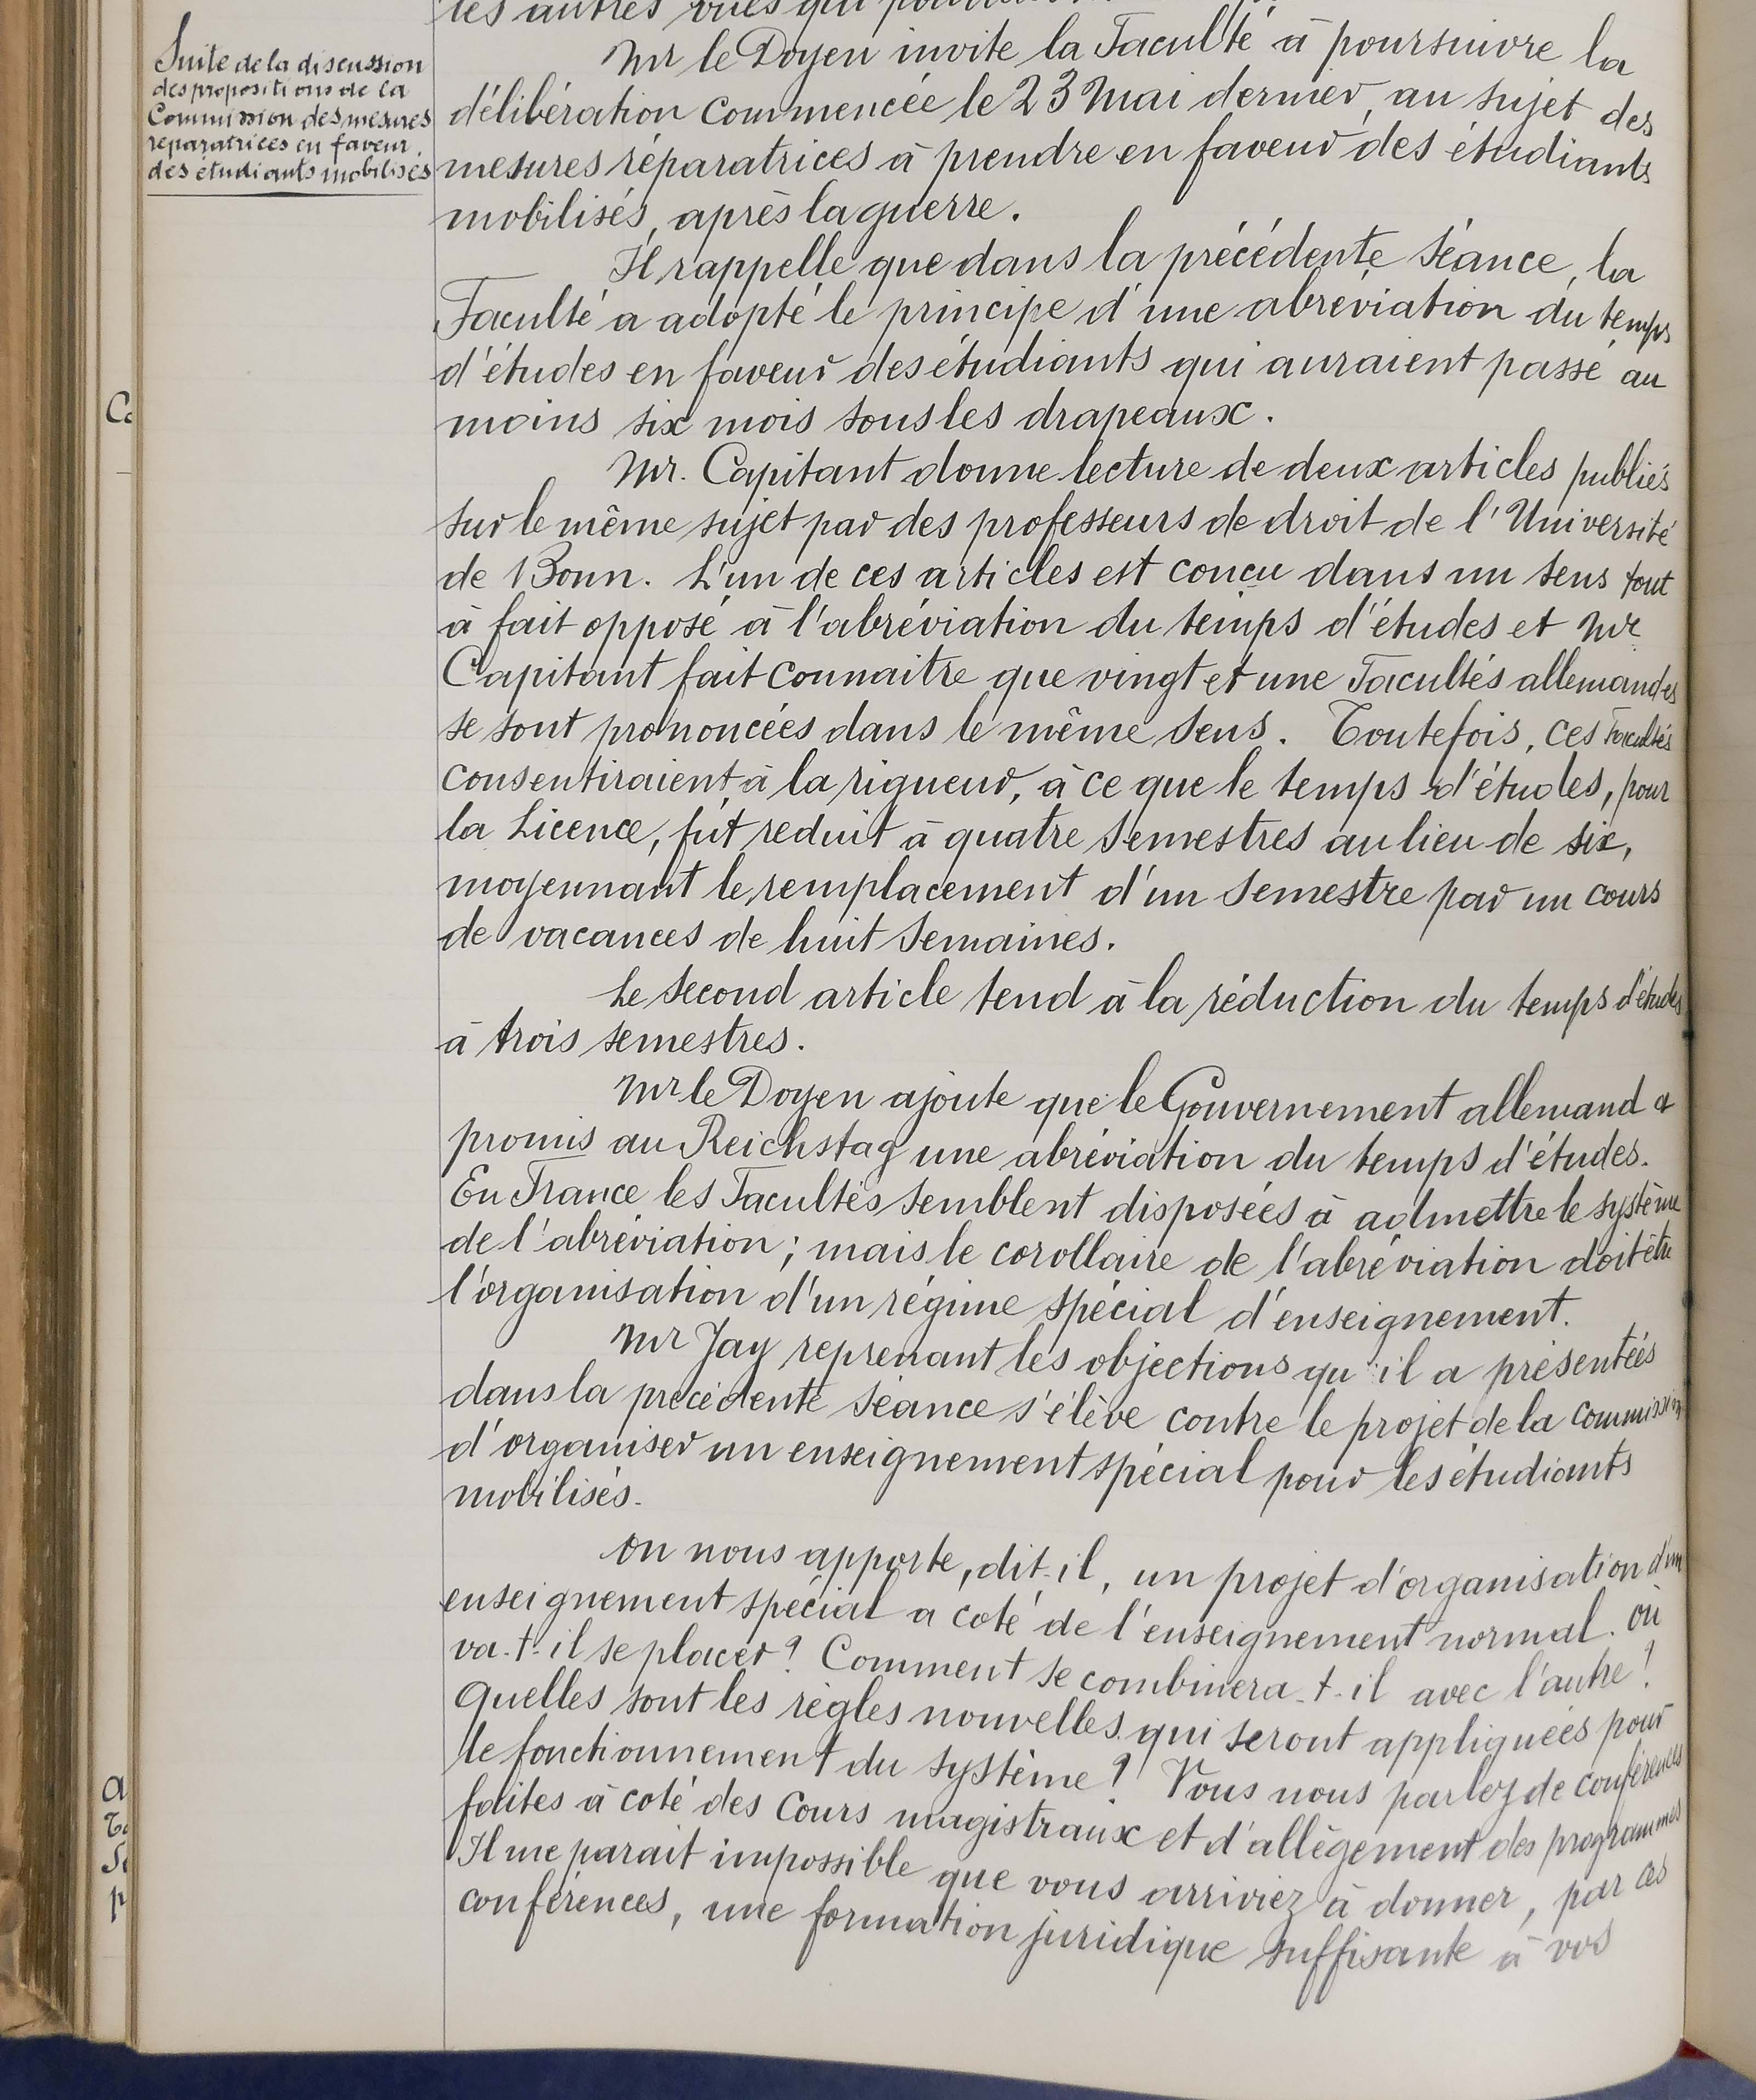 les autres vues qui
Suite de la discussion
des propositions de la
Commission des mesures
reparatrices en faveur
des étudiants mobilisés
Mr le Doyen invite la Faculté à poursuivre la
délibération commencée le 23 Mai dernier, au sujet des
mesures réparatrices à prendre en faveur des étudiants
mobilisés, après la guerre.
Il rappelle que dans la précédente séance, la
Faculté a adopté le principe d'une abréviation du temps
d'études en faveur des étudiants qui auraient passé au
moins six mois sous les drapeaux.
Mr. Capitant donne lecture de deux articles publiés
sur le même sujet par des professeurs de droit de l'Université
de Bonn. L'un de ces articles est conçu dans un sens tout
à fait opposé à l'abréviation du temps d'études et Mr
Capitant fait connaitre que vingt et une Facultés allemandes
se sont prononcées dans le même sens. Toutefois, ces Facultés
consentiraient à la rigueur, à ce que le temps d'études, pour
la Licence, fût reduit à quatre semestres au lieu de six,
moyennant le remplacement d'un semestre par un cours
de vacances de huit semaines.
Le second article tend à la réduction du temps d'études
à trois semestres.
Mr le Doyen ajoute que le Gouvernement allemand a
promis au Reichstag une abréviation du temps d'études.
En France les Facultés semblent disposées à admettre le système
de l'abréviation ; mais le corollaire de l'abréviation doit être
l'organisation d'un régime spécial d'enseignement.
Mr Jay reprenant les objections qu'il a présentées
dans la précédente séance s'élève contre le projet de la commission
d'organiser un enseignement spécial pour les étudiants
mobilisés.
On nous apporte, dit-il, un projet d'organisation d'un
enseignement spécial a coté de l'enseignement normal. Où
va-t-il se placer ? Comment se combinera-t-il avec l'autre ?
Quelles sont les règles nouvelles qui seront appliquées pour
le fonctionnement du système ? Vous nous parlez de conférences
faites à coté des Cours magistraux et d'allègement des programmes
Il me parait impossible que vous arriviez à donner, par ces
conférences, une formation juridique suffisante à vos